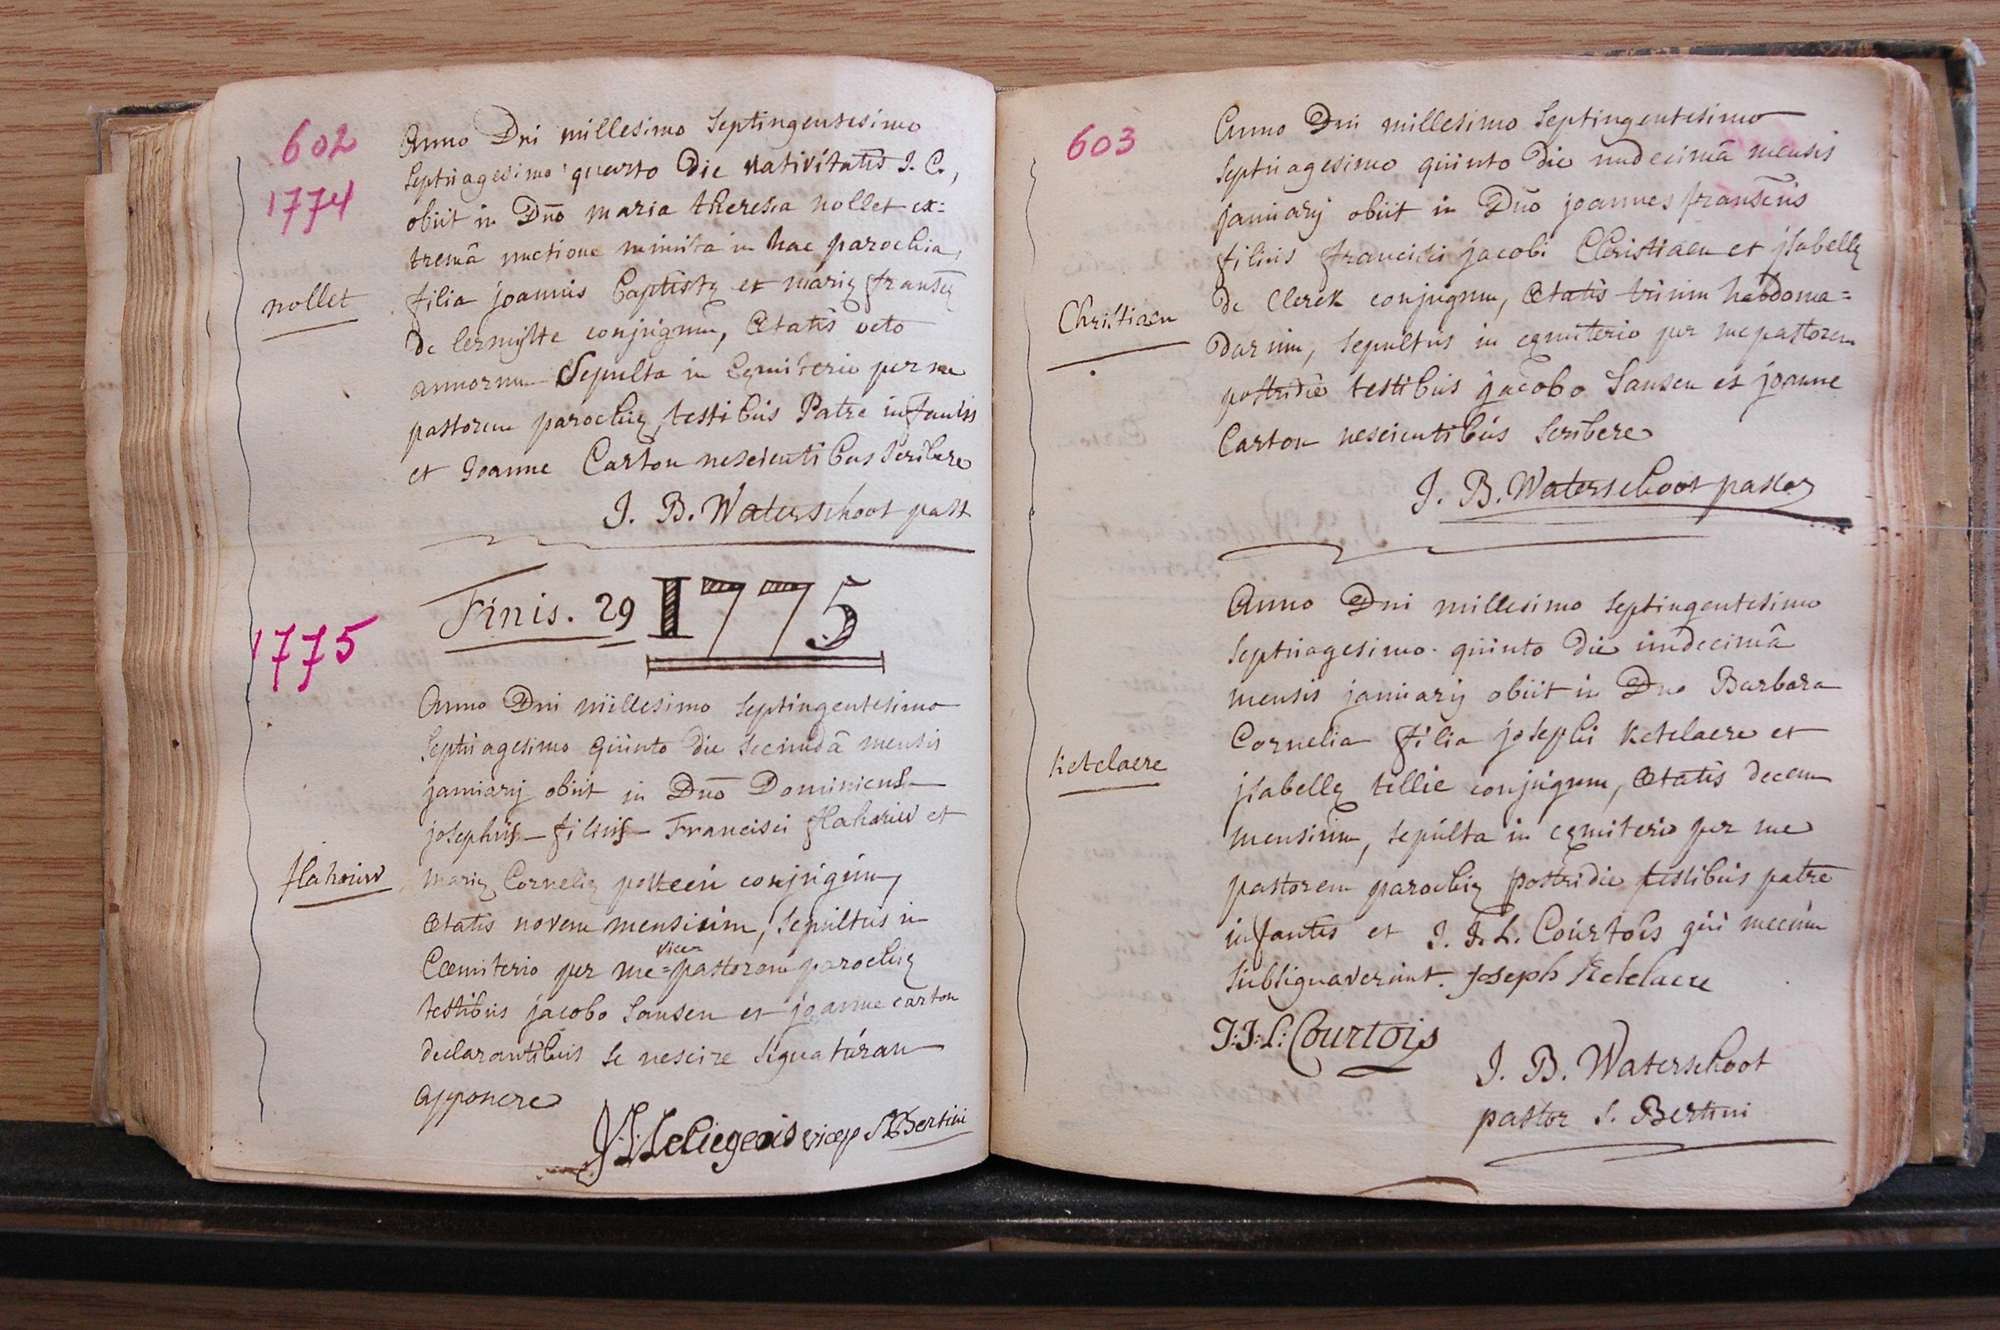 602
1774
Anno Dni millesimo Septingentesimo
Septuagesimo quarto die nativitatis J. C.,
obiit in Dño maria theresia nollet ex=
tremâ unctione munita in hac parochia,
nollet
filia joannis Baptistę et marię
de conjugum, Ætatis octo
annorum Sepulta in Cęmiterio per me
pastorem parochię, testibus Patre infantis
et Joanne Carton nescientibus Scribere
J. B. Waterschoot past
Finis. 29 1775
1775
Anno Dni millesimo Septingentesimo
Septuagesimo quinto die secundâ mensis
januarij obiit in Dño Dominicus
josephus filius Francisci flahouw et
flahouw
marię Cornelię conjugum,
Ætatis novem mensium, sepultus in
Cœmiterio per me=vice=pastorem parochię
testibus jacobo Sansen et joanne carton
declarantibus se nescire signaturam
apponere
Leliegeois vicep St Bertini
603
Anno Dni millesimo Septingentesimo
Septuagesimo quinto die undecimâ mensis
januarij obiit in Dño joannes
filius francisci jacobi Christiaen et jsabellę
Christiaen
de Clerck conjugum, Ætatis trium hebdoma=
darum, sepultus in cęmiterio per me pastorem
postridie testibus jacobo Sansen et joanne
Carton nescientibus Scribere
J. B. Waterschoot pastor
Anno Dni millesimo Septingentesimo
Septuagesimo quinto die undecimâ
mensis januarij obiit in Dno Barbara
Cornelia filia josephi Ketelaere et
ketelaere
jsabellę tillie conjugum, Ætatis decem
mensium, sepulta in cęmiterio per me
pastorem parochię postridie testibus patre
infantis et J. J. L. Courtois qui mecum
Subsignaverunt. Joseph Ketelaere
J: J: L: Courtois
J. B. Waterschoot
pastor S. Bertini